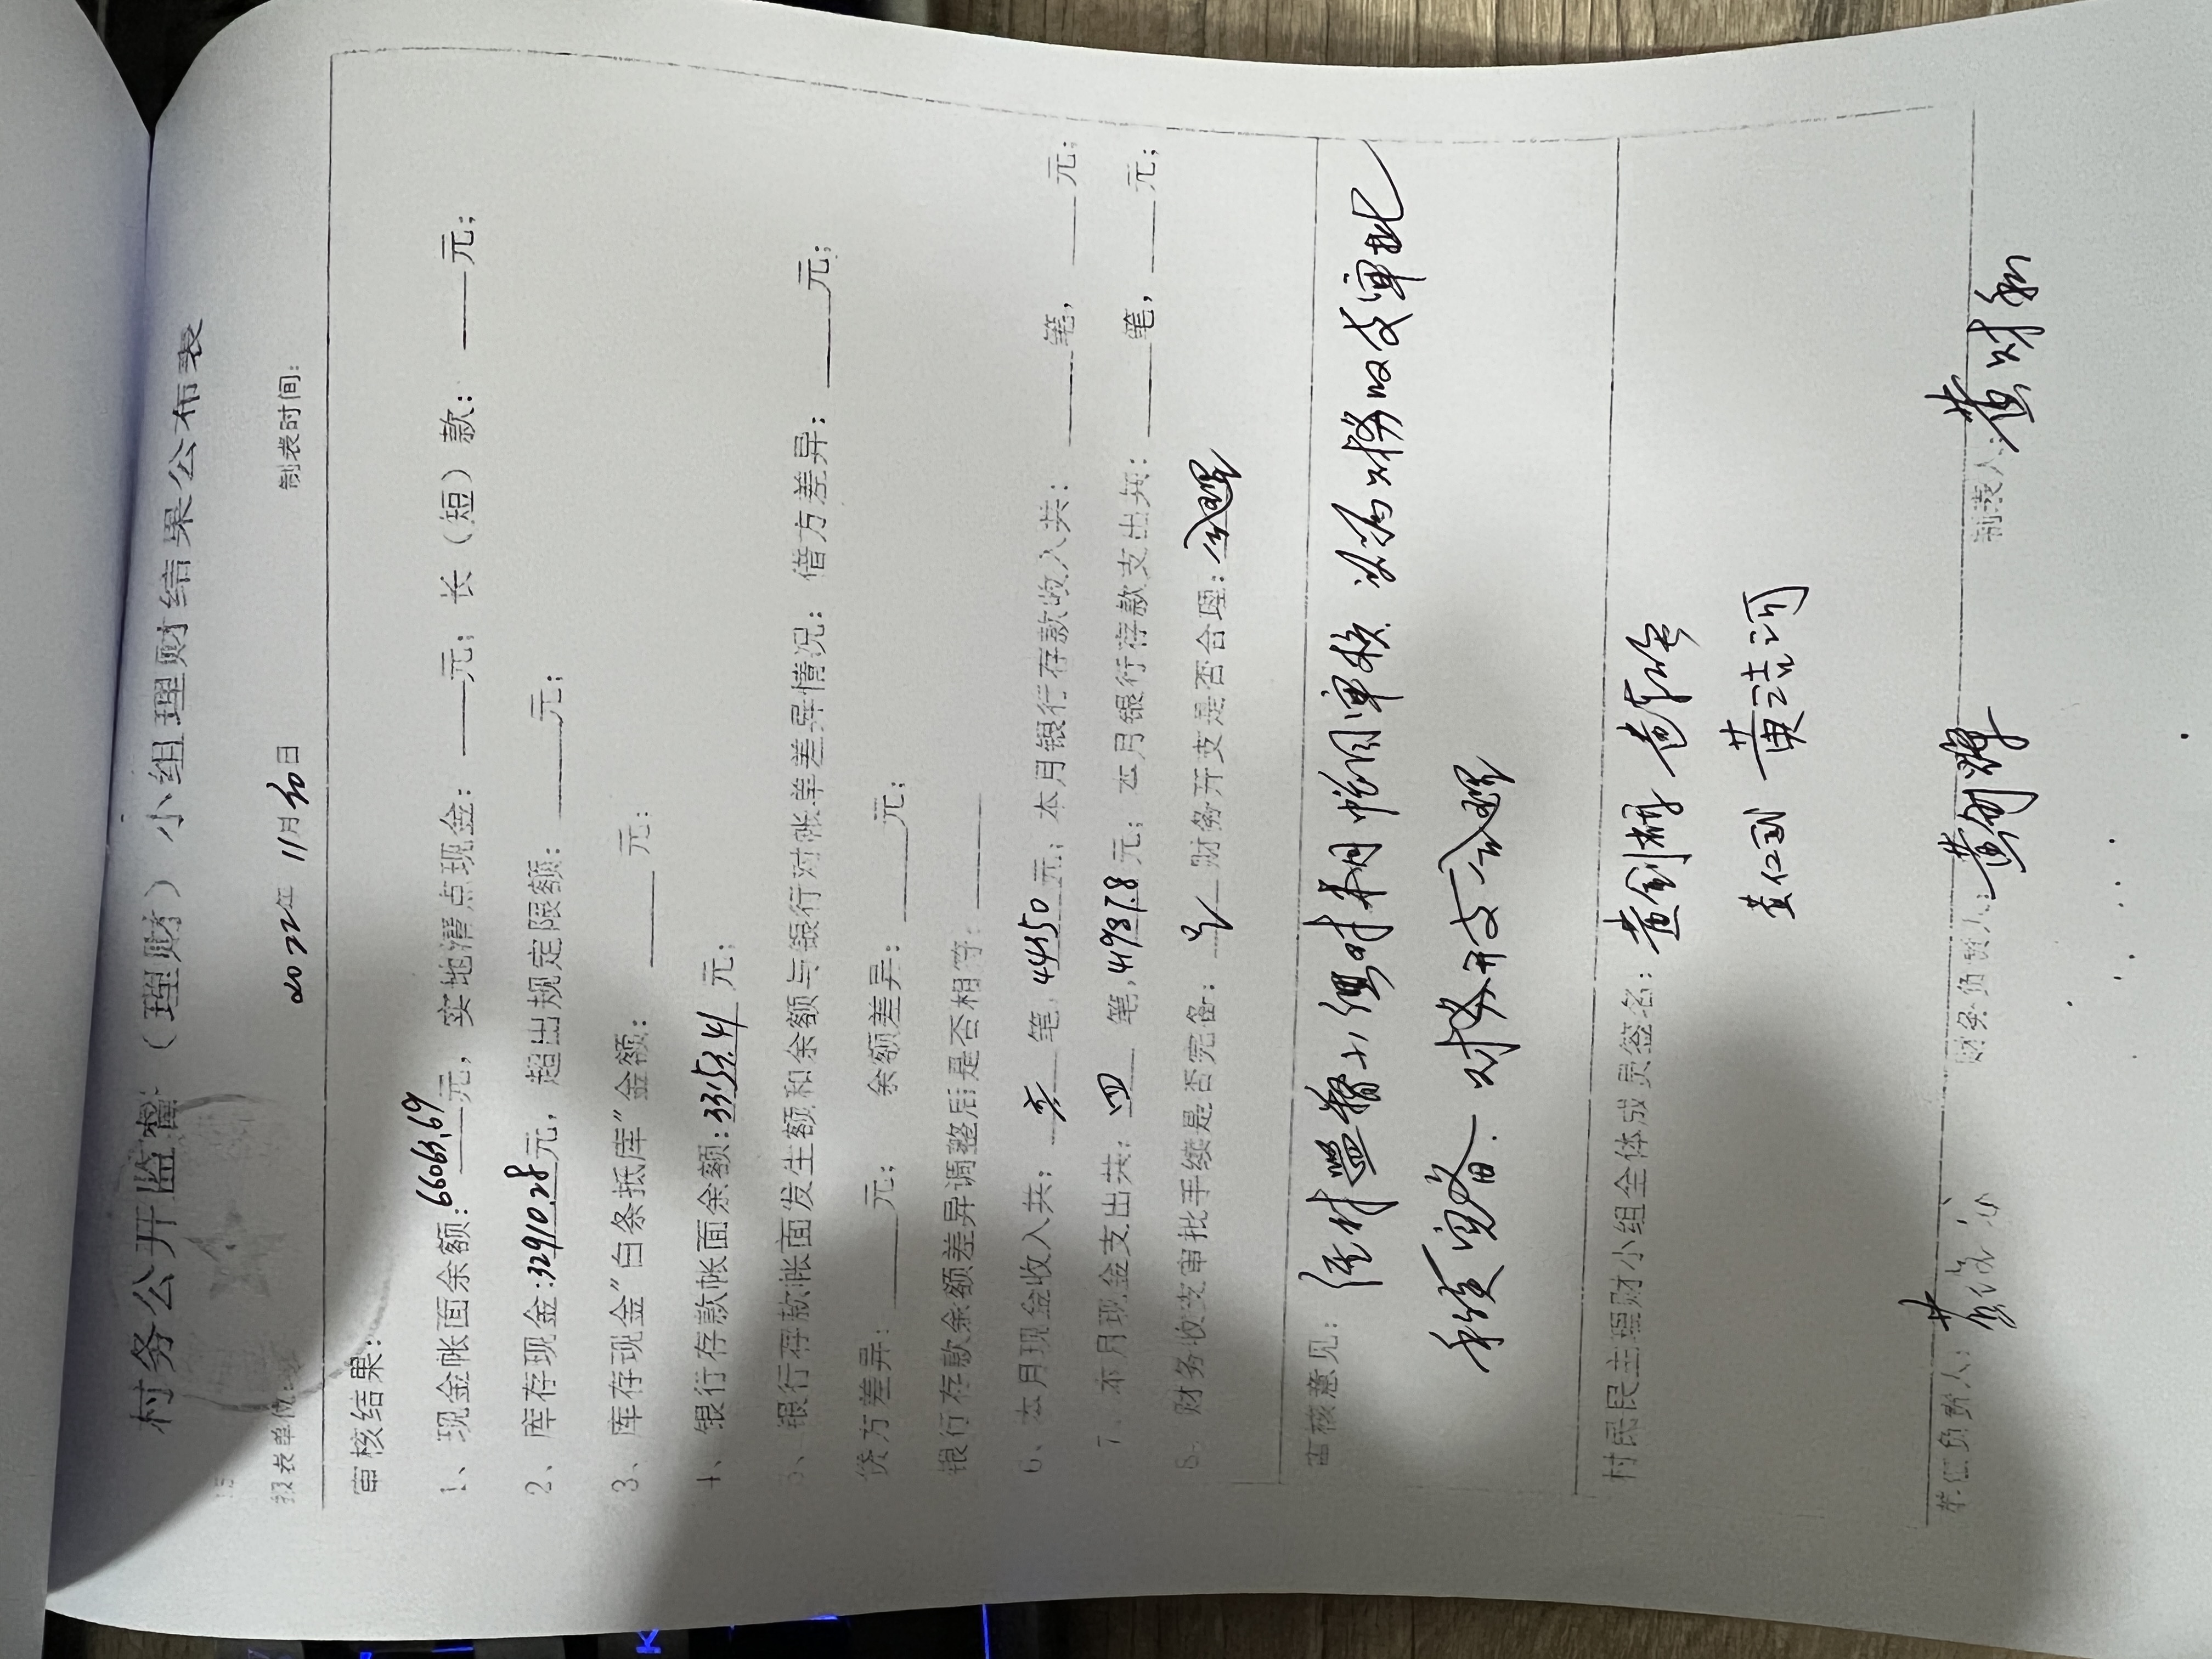 村务公开监督（理财）小组理财结果公布表
报表单位: 2022年 11月30日 制表时间:
审核结果:
1、现金帐面余额: 66063.69元, 实地清点现金: 元; 长（短）款: 元;
2、库存现金: 32910.28元, 超出规定限额: 元;
3、库存现金“白条抵库”金额: 元;
4、银行存款帐面余额: 33153.41 元;
5、银行存款帐面发生额和余额与银行对帐单差异情况: 借方差异: 元;
贷方差异: 元; 余额差异: 元;
银行存款余额差异调整后是否相等:
6、本月现金收入共: 笔, 44450元; 本月银行存款收入共: 笔, 元;
7、本月现金支出共: 四 笔, 41937.8元; 本月银行存款支出共: 笔, 元;
8、财务收支审批手续是否完备: 是 财务开支是否合理: 合理
审核意见: 经村监督小组对本月帐目审核 认为财务收支审批
手续完备. 财务开支合理
村民民主理财小组全体成员签名: 黄剑辉
黄仁国 黄洁河
单位负责人: 财务负责人: 制表人: